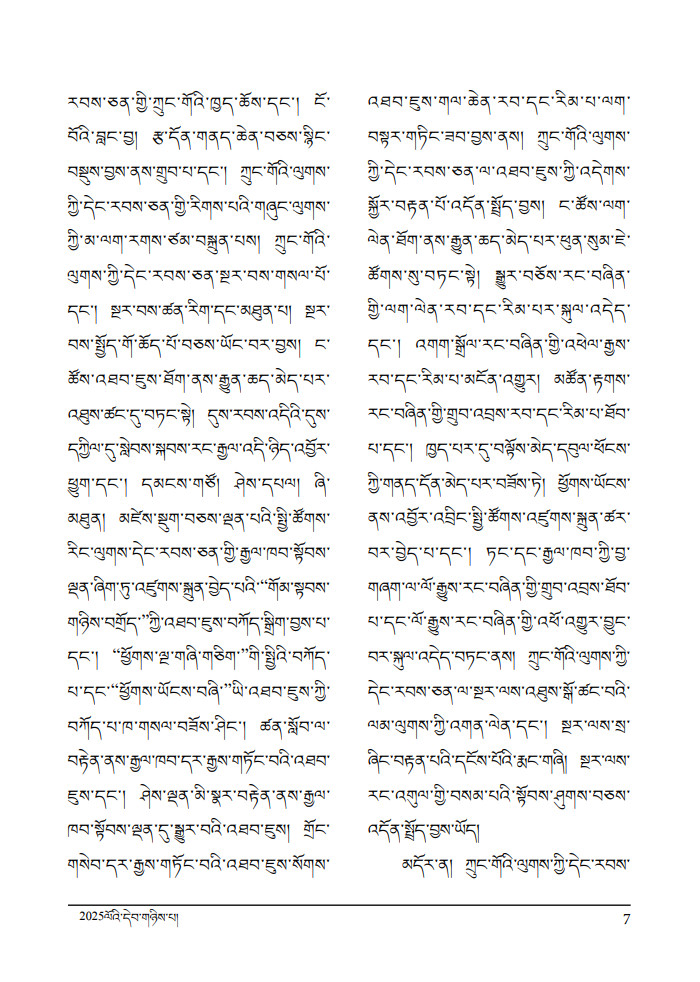 རབས་ཅན་གྱི་ཀྲུང་གོའི་ཁྱད་ཆོས་དང་། ངོ་
བོའི་བླང་བྱ། རྩ་དོན་གནད་ཆེན་བཅས་སྙིང་
བསྡུས་བྱས་ནས་གྲུབ་པ་དང་། ཀྲུང་གོའི་ལུགས་
ཀྱི་དེང་རབས་ཅན་གྱི་རིགས་པའི་གཞུང་ལུགས་
ཀྱི་མ་ལག་རགས་ཙམ་བསྐྲུན་པས། ཀྲུང་གོའི་
ལུགས་ཀྱི་དེང་རབས་ཅན་སྔར་བས་གསལ་པོ་
དང་། སྔར་བས་ཚན་རིག་དང་མཐུན་པ། སྔར་
བས་སྤྱོད་གོ་ཆོད་པོ་བཅས་ཡོང་བར་བྱས། ང་
ཚོས་འཐབ་ཇུས་ཐོག་ནས་རྒྱུན་ཆད་མེད་པར་
འཐུས་ཚང་དུ་བཏང་སྟེ། དུས་རབས་འདིའི་དུས་
དཀྱིལ་དུ་སླེབས་སྐབས་རང་རྒྱལ་འདི་ཉིད་འབྱོར་
ཕྱུག་དང་། དམངས་གཙོ། ཤེས་དཔལ། ཞི་
མཐུན། མཛེས་སྡུག་བཅས་ལྡན་པའི་སྤྱི་ཚོགས་
རིང་ལུགས་དེང་རབས་ཅན་གྱི་རྒྱལ་ཁབ་སྟོབས་
ལྡན་ཞིག་ཏུ་འཛུགས་སྐྲུན་བྱེད་པའི་“གོམ་སྟབས་
གཉིས་བགྲོད་”ཀྱི་འཐབ་ཇུས་བཀོད་སྒྲིག་བྱས་པ་
དང་། “ཕྱོགས་ལྔ་གཞི་གཅིག་”གི་སྤྱིའི་བཀོད་
པ་དང་“ཕྱོགས་ཡོངས་བཞི་”ཡི་འཐབ་ཇུས་ཀྱི་
བཀོད་པ་ཁ་གསལ་བཟོས་ཤིང་། ཚན་སློབ་ལ་
བརྟེན་ནས་རྒྱལ་ཁབ་དར་རྒྱས་གཏོང་བའི་འཐབ་
ཇུས་དང་། ཤེས་ལྡན་མི་སྣར་བརྟེན་ནས་རྒྱལ་
ཁབ་སྟོབས་ལྡན་དུ་སྒྱུར་བའི་འཐབ་ཇུས། གྲོང་
གསེབ་དར་རྒྱས་གཏོང་བའི་འཐབ་ཇུས་སོགས་
འཐབ་ཇུས་གལ་ཆེན་རབ་དང་རིམ་པ་ལག་
བསྟར་གཏིང་ཟབ་བྱས་ནས། ཀྲུང་གོའི་ལུགས་
ཀྱི་དེང་རབས་ཅན་ལ་འཐབ་ཇུས་ཀྱི་འདེགས་
སྐྱོར་བརྟན་པོ་འདོན་སྤྲོད་བྱས། ང་ཚོས་ལག་
ལེན་ཐོག་ནས་རྒྱུན་ཆད་མེད་པར་ཕུན་སུམ་ཇེ་
ཚོགས་སུ་བཏང་སྟེ། སྒྱུར་བཅོས་རང་བཞིན་
གྱི་ལག་ལེན་རབ་དང་རིམ་པར་སྐུལ་འདེད་
དང་། འགག་སྒྲོལ་རང་བཞིན་གྱི་འཕེལ་རྒྱས་
རབ་དང་རིམ་པ་མངོན་འགྱུར། མཚོན་རྟགས་
རང་བཞིན་གྱི་གྲུབ་འབྲས་རབ་དང་རིམ་པ་ཐོབ་
པ་དང་། ཁྱད་པར་དུ་བལྟོས་མེད་དབུལ་ཕོངས་
ཀྱི་གནད་དོན་མེད་པར་བཟོས་ཏེ། ཕྱོགས་ཡོངས་
ནས་འབྱོར་འབྲིང་སྤྱི་ཚོགས་འཛུགས་སྐྲུན་ཚར་
བར་བྱེད་པ་དང་། ཏང་དང་རྒྱལ་ཁབ་ཀྱི་བྱ་
གཞག་ལ་ལོ་རྒྱུས་རང་བཞིན་གྱི་གྲུབ་འབྲས་ཐོབ་
པ་དང་ལོ་རྒྱུས་རང་བཞིན་གྱི་འཕོ་འགྱུར་བྱུང་
བར་སྐུལ་འདེད་བཏང་ནས། ཀྲུང་གོའི་ལུགས་ཀྱི་
དེང་རབས་ཅན་ལ་སྔར་ལས་འཐུས་སྒོ་ཚང་བའི་
ལམ་ལུགས་ཀྱི་འགན་ལེན་དང་། སྔར་ལས་སྲ་
ཞིང་བརྟན་པའི་དངོས་པོའི་རྨང་གཞི། སྔར་ལས་
རང་འགུལ་གྱི་བསམ་པའི་སྟོབས་ཤུགས་བཅས་
འདོན་སྤྲོད་བྱས་ཡོད།
མདོར་ན། ཀྲུང་གོའི་ལུགས་ཀྱི་དེང་རབས་
2025ལོའི་དེབ་གཉིས་པ།
7